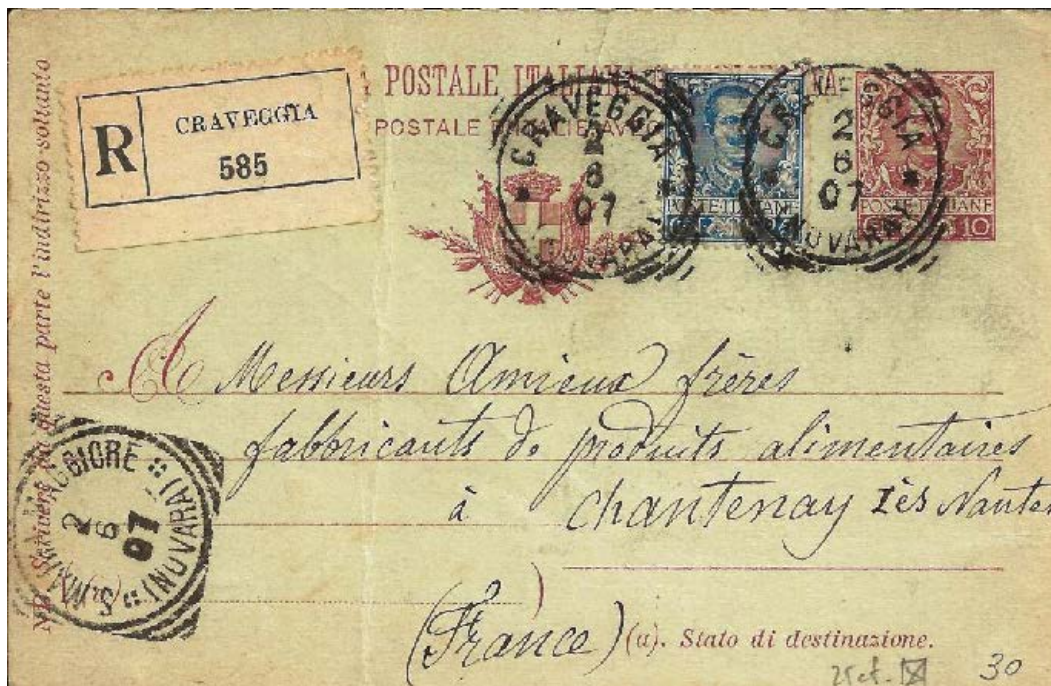 NB. Scrivere su questa parte l'indirizzo soltanto
R
CRAVEGGIA
585
POSTALE ITALIANA
POSTALE
CRAVEGGIA
2
8
07
POSTE ITALIANE
CRAVEGGIA
2
8
07
(NOVARA)
POSTE ITALIANE
10
A Messieurs Amieux frères
fabbricants de produits alimentaires
à Chantenay lès Nantes
(France) (a). Stato di destinazione.
S. MARIA MAGGIORE
(NOVARA)
2
07
30